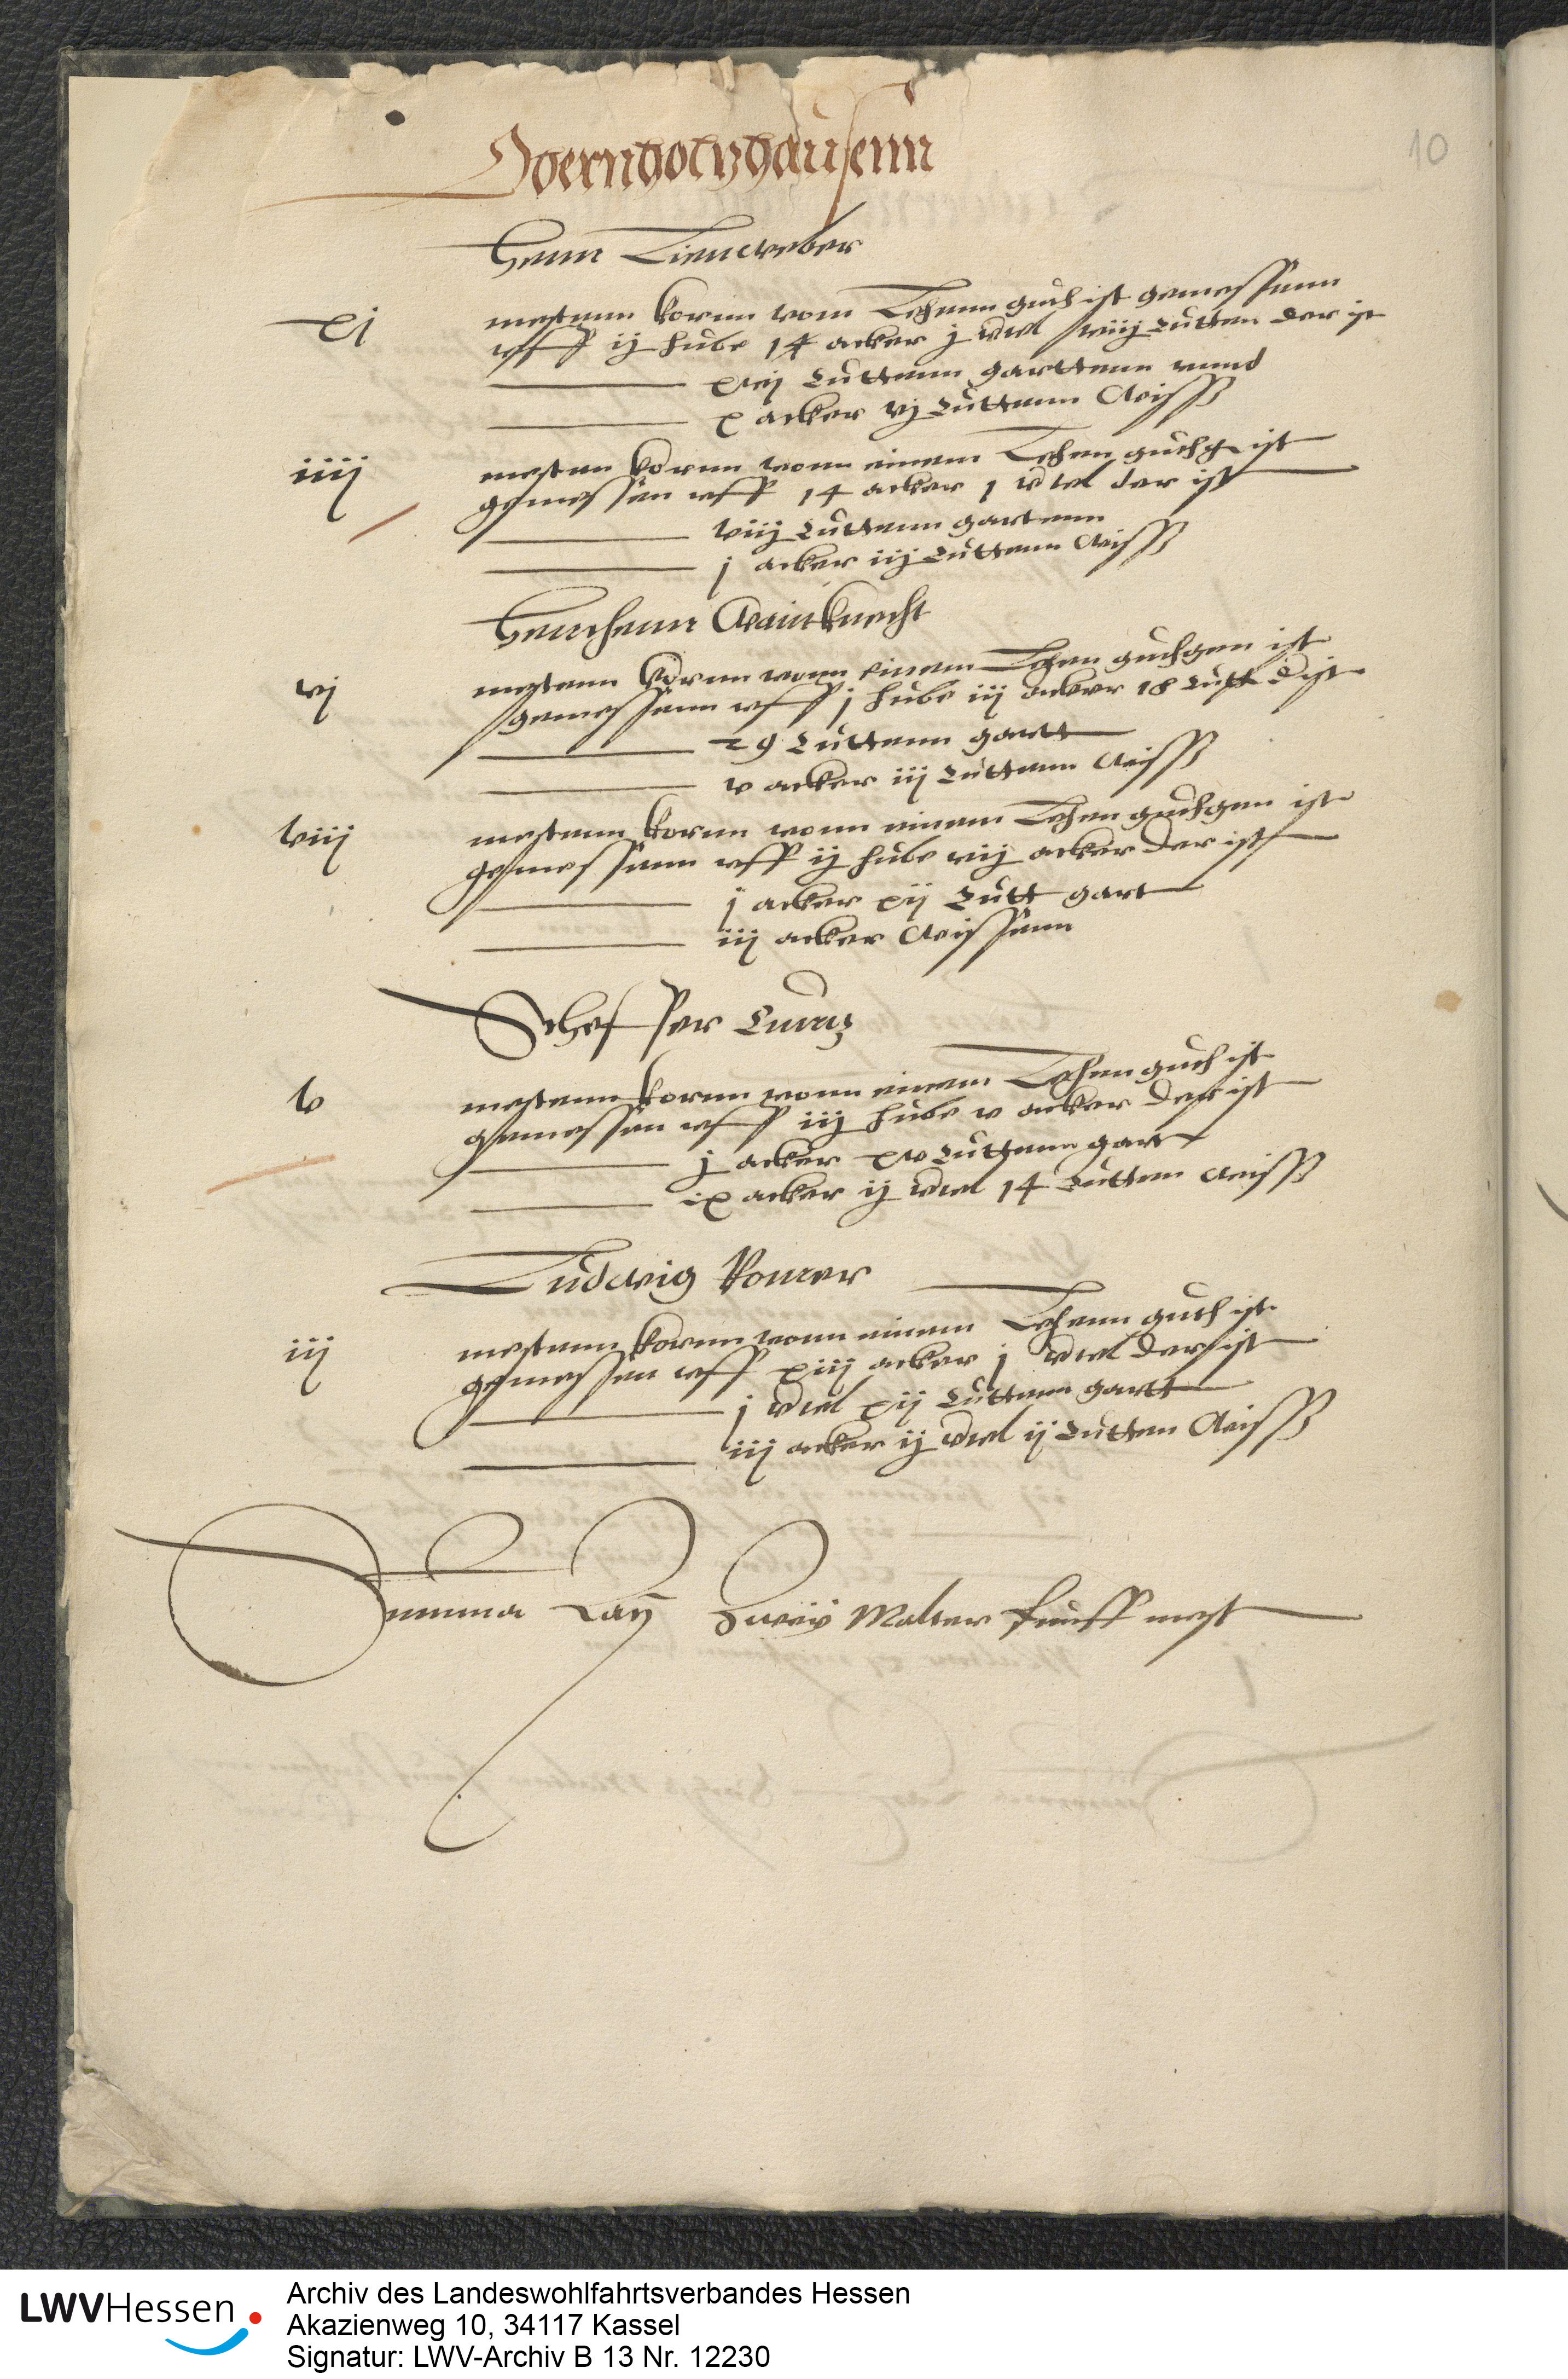 10
Obernholtzhausenn
Henn Linweber
xi mestenn kornn vom Lehenn guth ist gemessenn
uff ij hube 14 acker j virtel xviij Rutten der ist
xvij Ruttenn garttenn unnd
x acker vj Ruttenn Weiss
iiij mesten kornn vonn einem Lehen guthge ist
gemessen uff 14 acker 1 virtel der ist
viij Ruttenn gartenn
j acker iij Ruttenn Weiss
Hennchenn Wainknecht
vj mestenn kornn vonn einem Lehen guthgen ist
gemessenn uff j hube iij acker 18 Rutt d ist
29 Ruttenn gartt
v acker iij Ruttenn Weiss
viij mestenn kornn vonn einem Lehen guthgen ist
gemessenn uff ij hube vij acker der ist
j acker xij Rutt gart
iij acker Weissenn
Scheffer Cuntz
v mestenn kornn vonn einem Lehen guth ist
gemessen uff iij hube v acker der ist
j acker xv Ruttenn gart
ix acker ij virtel 14 Rutten Weiss
Ludwig
iij mestenn kornn vonn einem Lehenn guth ist
gemessen uff xiij acker j virtel der ist
j virtel xij Ruttenn gartt
iij acker ij virtel ij Rutten Weiss
Summa Malter funff mest
LWVHessen
Archiv des Landeswohlfahrtsverbandes Hessen
Akazienweg 10, 34117 Kassel
Signatur: LWV-Archiv B 13 Nr. 12230